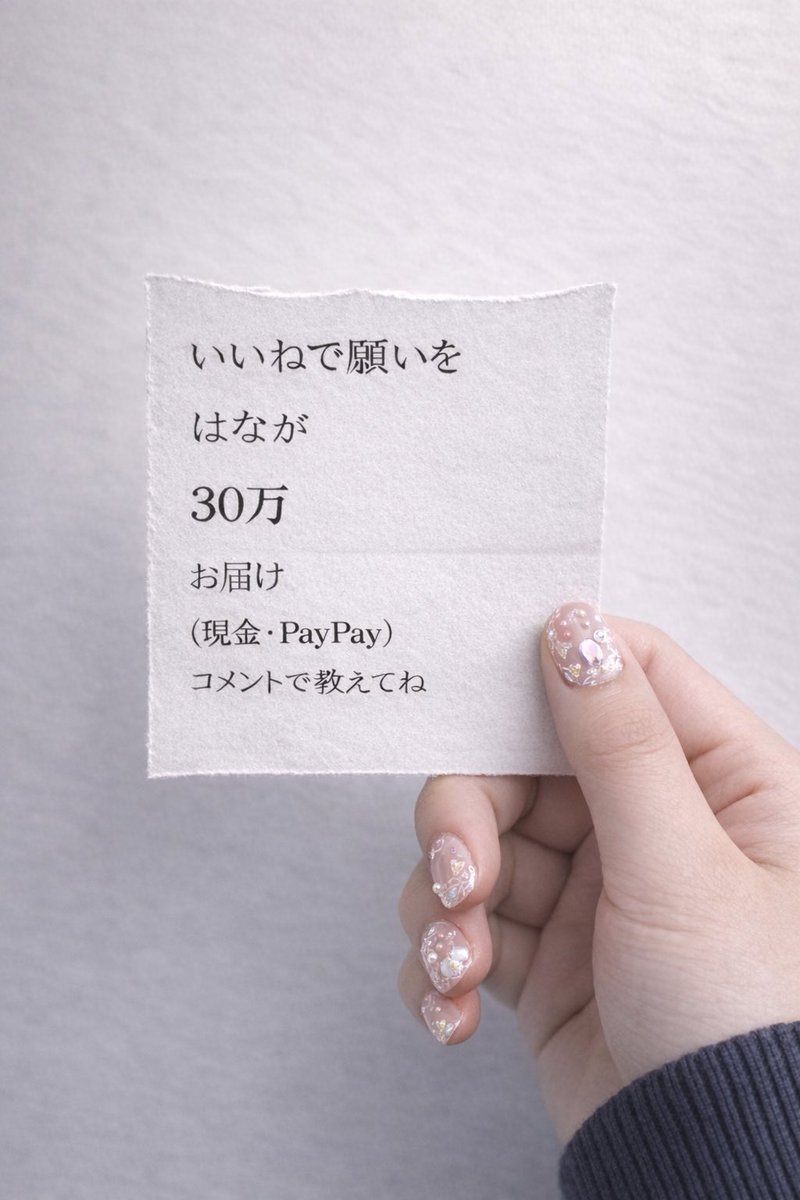 いいねで願いを
はなが
30万
お届け
(現金・PayPay)
コメントで教えてね